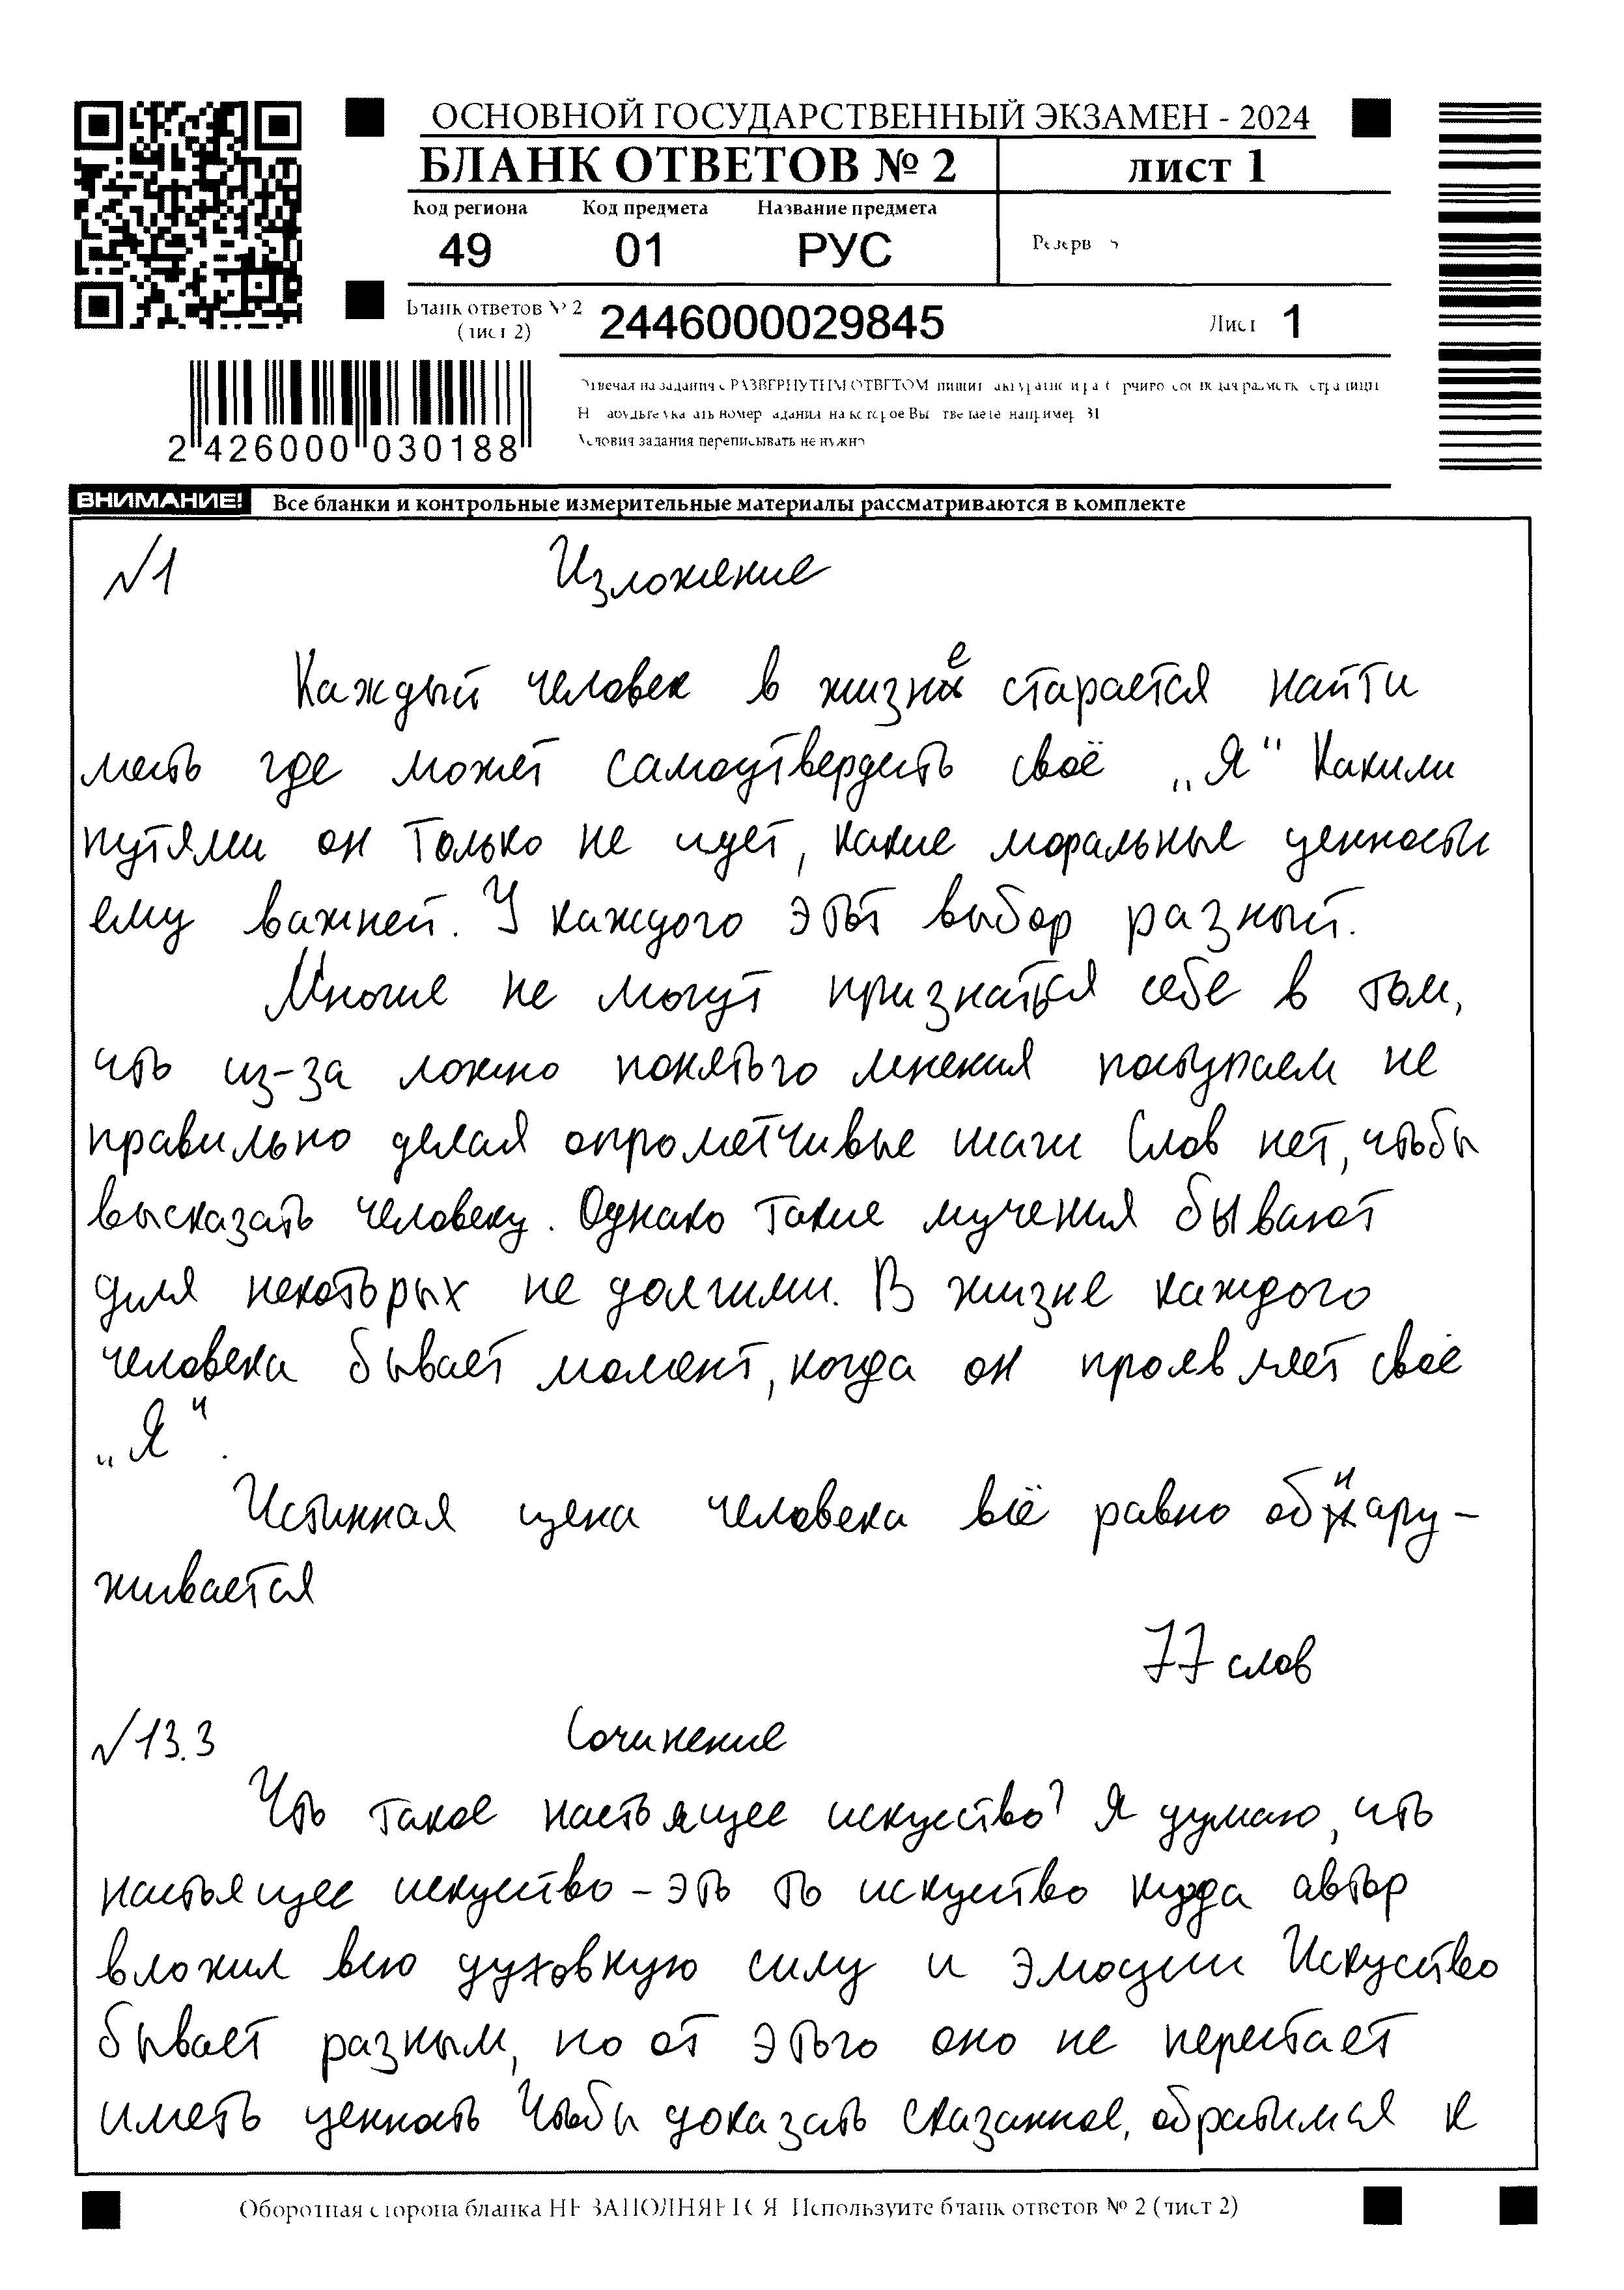 ОСНОВНОЙ ГОСУДАРСТВЕННЫЙ ЭКЗАМЕН - 2024
БЛАНК ОТВЕТОВ № 2
лист 1
Код региона Код предмета Название предмета
49 01 РУС
Резерв - 5
Бланк ответов № 2
(лист 2)
2446000029845
Лист 1
Отвечая на задания с РАЗВЕРНУТЫМ ОТВЕТОМ, пишите аккуратно и разборчиво, соблюдая разметку страницы
Не забудьте указать номер задания, на которое Вы отвечаете, например, 31
Условия задания переписывать не нужно
2 426000 030188
ВНИМАНИЕ! Все бланки и контрольные измерительные материалы рассматриваются в комплекте
№1 Изложение
Каждый человек в жизне старается найти
месть где может самоутвердеть своё „Я“ Какими
путями он только не идет, какие моральные ценности
ему важней. У каждого этот выбор разный.
Многие не могут признаться себе в том,
что из-за ложно понятого мнения поступаем не
правильно делая опрометчивые шаги Слов нет, чтобы
высказать человеку. Однако такие мучения бывают
для некоторых не долгими. В жизне каждого
человека бывает момент, когда он проявляет своё
„Я“.
Истинная цена человека всё равно обнару-
живается
77 слов
№13.3 Сочинение
Что такое настоящее искуство? Я думаю, что
настоящее искуство - это то искуство куда автор
вложил всю духовную силу и эмоции Искуство
бывает разным, но от этого оно не перестает
иметь ценность Чтобы доказать сказанное, обратимся к
Оборотная сторона бланка НЕ ЗАПОЛНЯЕТСЯ. Используйте бланк ответов № 2 (лист 2)